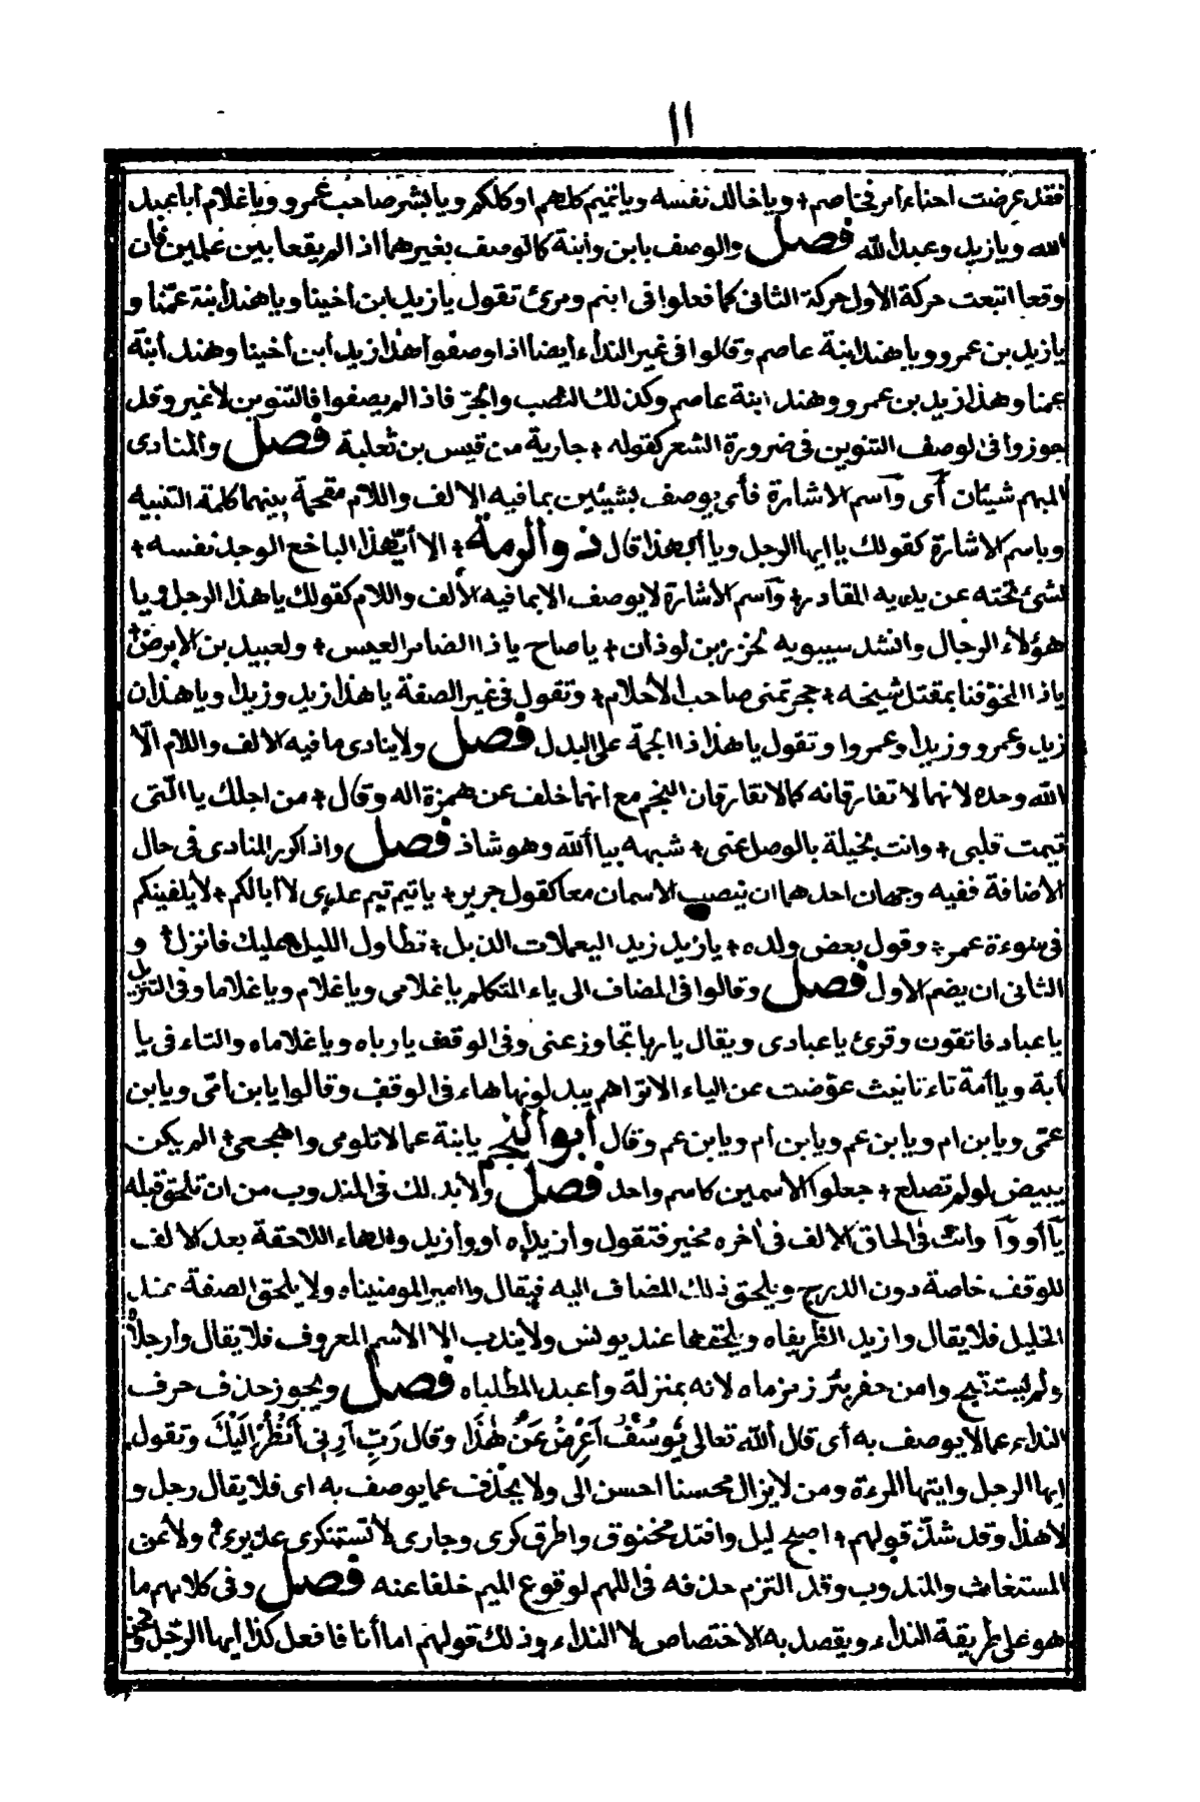 ١١
فقد عرضت احناء امر فخاصم + ويا خالد نفسه ويا تميم كلهم او كلكم ويا بشر صاحب عمرو ويا غلام ابا عبد
الله ويا زيد وعبد الله فصل والوصف بابن وابنة كالوصف بغيرهما اذا لم يقعا بين علمين فان
وقعا اتبعت حركة الاول حركة الثانى كما فعلوا فى ابنم ومرئ تقول يا زيد ابن اخينا ويا هند ابنة عمنا و
يا زيد بن عمرو ويا هند ابنة عاصم وقالوا فى غير النداء ايضا اذا وصفوا هذا زيد ابن أخينا وهند أبنة
عمنا وهذا زيد بن عمرو وهند ابنة عاصم وكذلك النصب والجر فاذا لم يصفوا فالتنوين لا غير وقد
جوزوا فى الوصف التنوين فى ضرورة الشعر كقوله + جارية من قيس بن ثعلبة فصل والمنادى
المبهم شيئان أى وآسم الاشارة فأى يوصف بشيئين بما فيه الالف واللام مقحمة بينهما كلمة التنبيه
وباسم الاشارة كقولك يا ايها الرجل ويا أيهذا قال ذو الرمة + الا أيهذا الباخع الوجد نفسه +
لشئ نحته عن يديه المقادر + وآسم الأشارة لا يوصف الا بما فيه الألف واللام كقولك يا هذا الرجل ويا
هؤلاء الرجال وانشد سيبويه لخزز بن لوذان + يا صاح يا ذا الضامر العيس + ولعبيد بن الابرص +
يا ذا المخوفنا بمقتل شيخه + حجر تمنى صاحب الأحلام + وتقول فى غير الصفة يا هذا زيد وزيدا ويا هذان
زيد وعمرو وزيدا وعمروا وتقول يا هذا ذا الجمة على البدل فصل ولا ينادى ما فيه الالف واللام الا
الله وحده لانهما لا تفارقانه كما لا تفارقان النجم مع انهما خلف عن همزة اله وقال + من اجلك يا التى
تيمت قلبى + وانت بخيلة بالوصل عنى + شبهه بيا ألله وهو شاذ فصل واذا كرر المنادى فى حال
الاضافة ففيه وجهان احدهما ان ينصب الاسمان معا كقول جرير + يا تيم تيم عدى لا أبالكم + لا يلفينكم
فى سوءة عمر + وقول بعض ولده + يا زيد زيد اليعملات الذبل + تطاول الليل عليك فانزل + و
الثانى ان يضم الاول فصل وقالوا فى المضاف الى ياء المتكلم يا غلامى ويا غلام ويا غلاما وفى التنزيل
يا عباد فاتقون وقرئ يا عبادى ويقال يا ربا تجاوز عنى وفى الوقف يا رباه ويا غلاماه والتاء فى يا
أبة ويا أمة تاء تانيث عوضت عن الياء الا تراهم يبدلونها هاء فى الوقف وقالوا يا بن امى ويا بن
عمى ويا بن ام ويا بن عم ويا بن ام ويا بن عم وقال أبو النجم يا بنة عما لا تلومى واهجعى + الم يكن
يبيض لو لم تصلع + جعلوا الأسمين كاسم واحد فصل ولا بد لك فى المندوب من ان تلحق قبله
يا أو وآ وانت فى الحاق الالف فى اخره مخير فتقول وا زيداه او وا زيد والهاء اللاحقة بعد الالف
للوقف خاصة دون الدرج ويلحق ذلك المضاف اليه فيقال وا امير المومنيناه ولا يلحق الصفة عند
الخليل فلا يقال وا زيد الظريفاه ويلحقها عند يونس ولا يندب الا الاسم المعروف فلا يقال وا رجلاه
ولم يستقبح وا من حفر بئر زمزماه لانه بمنزلة وا عبد المطلباه فصل ويجوز حذف حرف
النداء عما لا يوصف به أى قال ألله تعالى يُوسُفُ اَعْرِضْ عَنْ هٰذَا وقال رَبِّ اَرِنِى اَنْظُرْ اِلَيْكَ وتقول
ايها الرجل وايتها المرءة ومن لا يزال محسنا احسن الى ولا يحذف عما يوصف به اى فلا يقال رجل و
لا هذا وقد شذ قولهم + اصبح ليل وافتد مخنوق واطرق كرى وجارى لا تستنكرى عذيرى + ولا عن
المستغاث والمندوب وقد التزم حذفه فى اللهم لوقوع الميم خلفا عنه فصل وفى كلامهم ما
هو على طريقة النداء ويقصد به الاختصاص لا النداء وذلك قولهم اما أنا فافعل كذا ايها الرجل ونحن